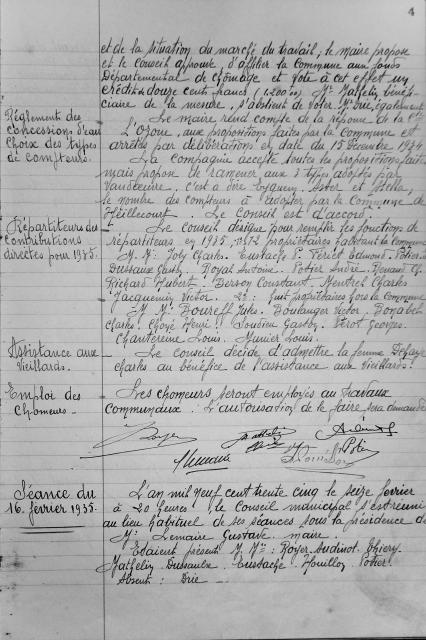 4
et de la situation du marché du travail, le maire propose
et le Conseil approuve, d'affilier la Commune aux fonds
Départemental de Chômage et vote à cet effet un
crédit de douze cents francs (1.200 00). Mr Mathelin bénéfi-
ciaire de la mesure, s'abstient de voter. également
Réglement des
concessions d'eau
Choix des types
de compteurs.
Le maire rend compte de la réponse de la Cie
L'Ozone, aux propositions faites par la Commune et
arrêtés par délibérations en date du 15 Décembre 1934
La compagnie accepte toutes les propositions faites
mais propose de ramener aux 3 types adoptés par
c'est à dire Aster et Stella,
le nombre des compteurs à adopter par la Commune de
Heillecourt. Le Conseil est d'accord.
Répartiteurs des
Contributions
directes pour 1935.
Le Conseil désigne pour remplir les fonctions de
répartiteurs en 1935, propriétaires habitant la Commune
M. M. Joly Charles. Eustache Ferriet Edmond. Potier
Dussaux Gaston. Royal Antoine. Potier André. Renaud
Richard Hubert. Bersoy Constant. Montret Charles
Jacquemin Victor. 2º: huit propriétaires hors la Commune
M. M. Boureff Jules. Boulanger Victor. Bonabel
Charles. Choné Henri. Toudieu Gaston. Georges.
Chanterenne Louis. Munier Louis.
Assistance aux
Vieillards.
Le Conseil décide d'admettre la femme
Charles au bénéfice de l'assistance aux Vieillards.
Emploi des
Chomeurs
Les chomeurs seront employés au travaux
Communaux. L'autorisation de le faire sera demandée
Séance du
16 février 1935.
L'an mil neuf cent trente cinq le seize février
à 20 heures, le Conseil municipal s'est réuni
au lieu habituel de ses séances sous la présidence de
Mr Lemaire Gustave maire.
Etaient présent M. Mrs: Royer. Audinot. Thiery.
Mathelin. Dussaulx. Eustache. Houillon. Potier.
Absent: